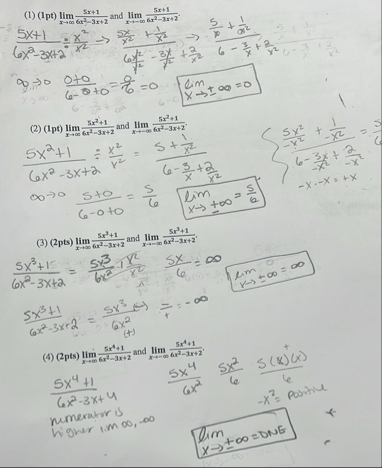 (1) (1pt) lim x→∞ 5x+1/6x²−3x+2 and lim x→−∞ 5x+1/6x²−3x+2.
5x+1/6x²-3x+2 ÷ x²/x² → 5x/x² + 1/x² / 6x²/x² - 3x/x² + 2/x² → 5/x + 1/x² / 6 - 3/x + 2/x²
∞→0 0+0/6-0+0 = 0/6 = 0 lim x→±∞ = 0
(2) (1pt) lim x→∞ 5x²+1/6x²−3x+2 and lim x→−∞ 5x²+1/6x²−3x+2.
5x²+1/6x²-3x+2 ÷ x²/x² = 5 + 1/x² / 6 - 3/x + 2/x²
5x²/-x² + 1/-x² / 6 - 3x/-x² + 2/-x² = 5/6
-x·-x = +x
∞→0 5+0/6-0+0 = 5/6 lim x→±∞ = 5/6
(3) (2pts) lim x→∞ 5x³+1/6x²−3x+2 and lim x→−∞ 5x³+1/6x²−3x+2.
5x³+1/6x²-3x+2 = 5x³/6x² ÷ x²/x² 5x/6 = ∞
lim x→±∞ = ∞
5x³+1/6x²-3x+2 = 5x³ (-)/6x² (+) = -/+ = -∞
(4) (2pts) lim x→∞ 5x⁴+1/6x²−3x+2 and lim x→−∞ 5x⁴+1/6x²−3x+2.
5x⁴+1/6x²-3x+4 5x⁴/6x² 5x²/6 5(x)(x)/6 +
-x² = positive
numerator is
higher lim ∞, -∞
lim x→±∞ = DNE